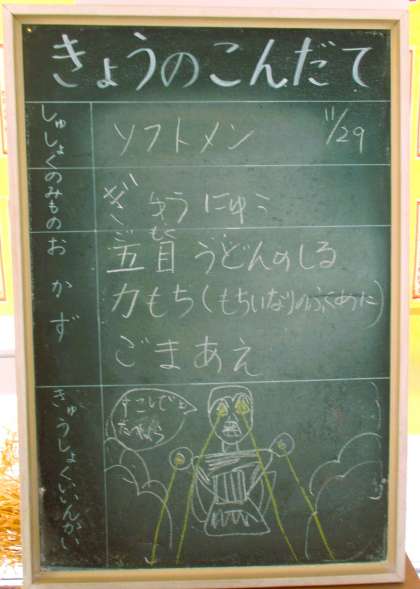 きょうのこんだて
しゅしょく
ソフトメン 11/29
のみもの
ぎゅうにゅう
おかず
ごもく
五目うどんのしる
力もち(もちいなりのふくめに)
ごまあえ
きゅうしょくいいんかい